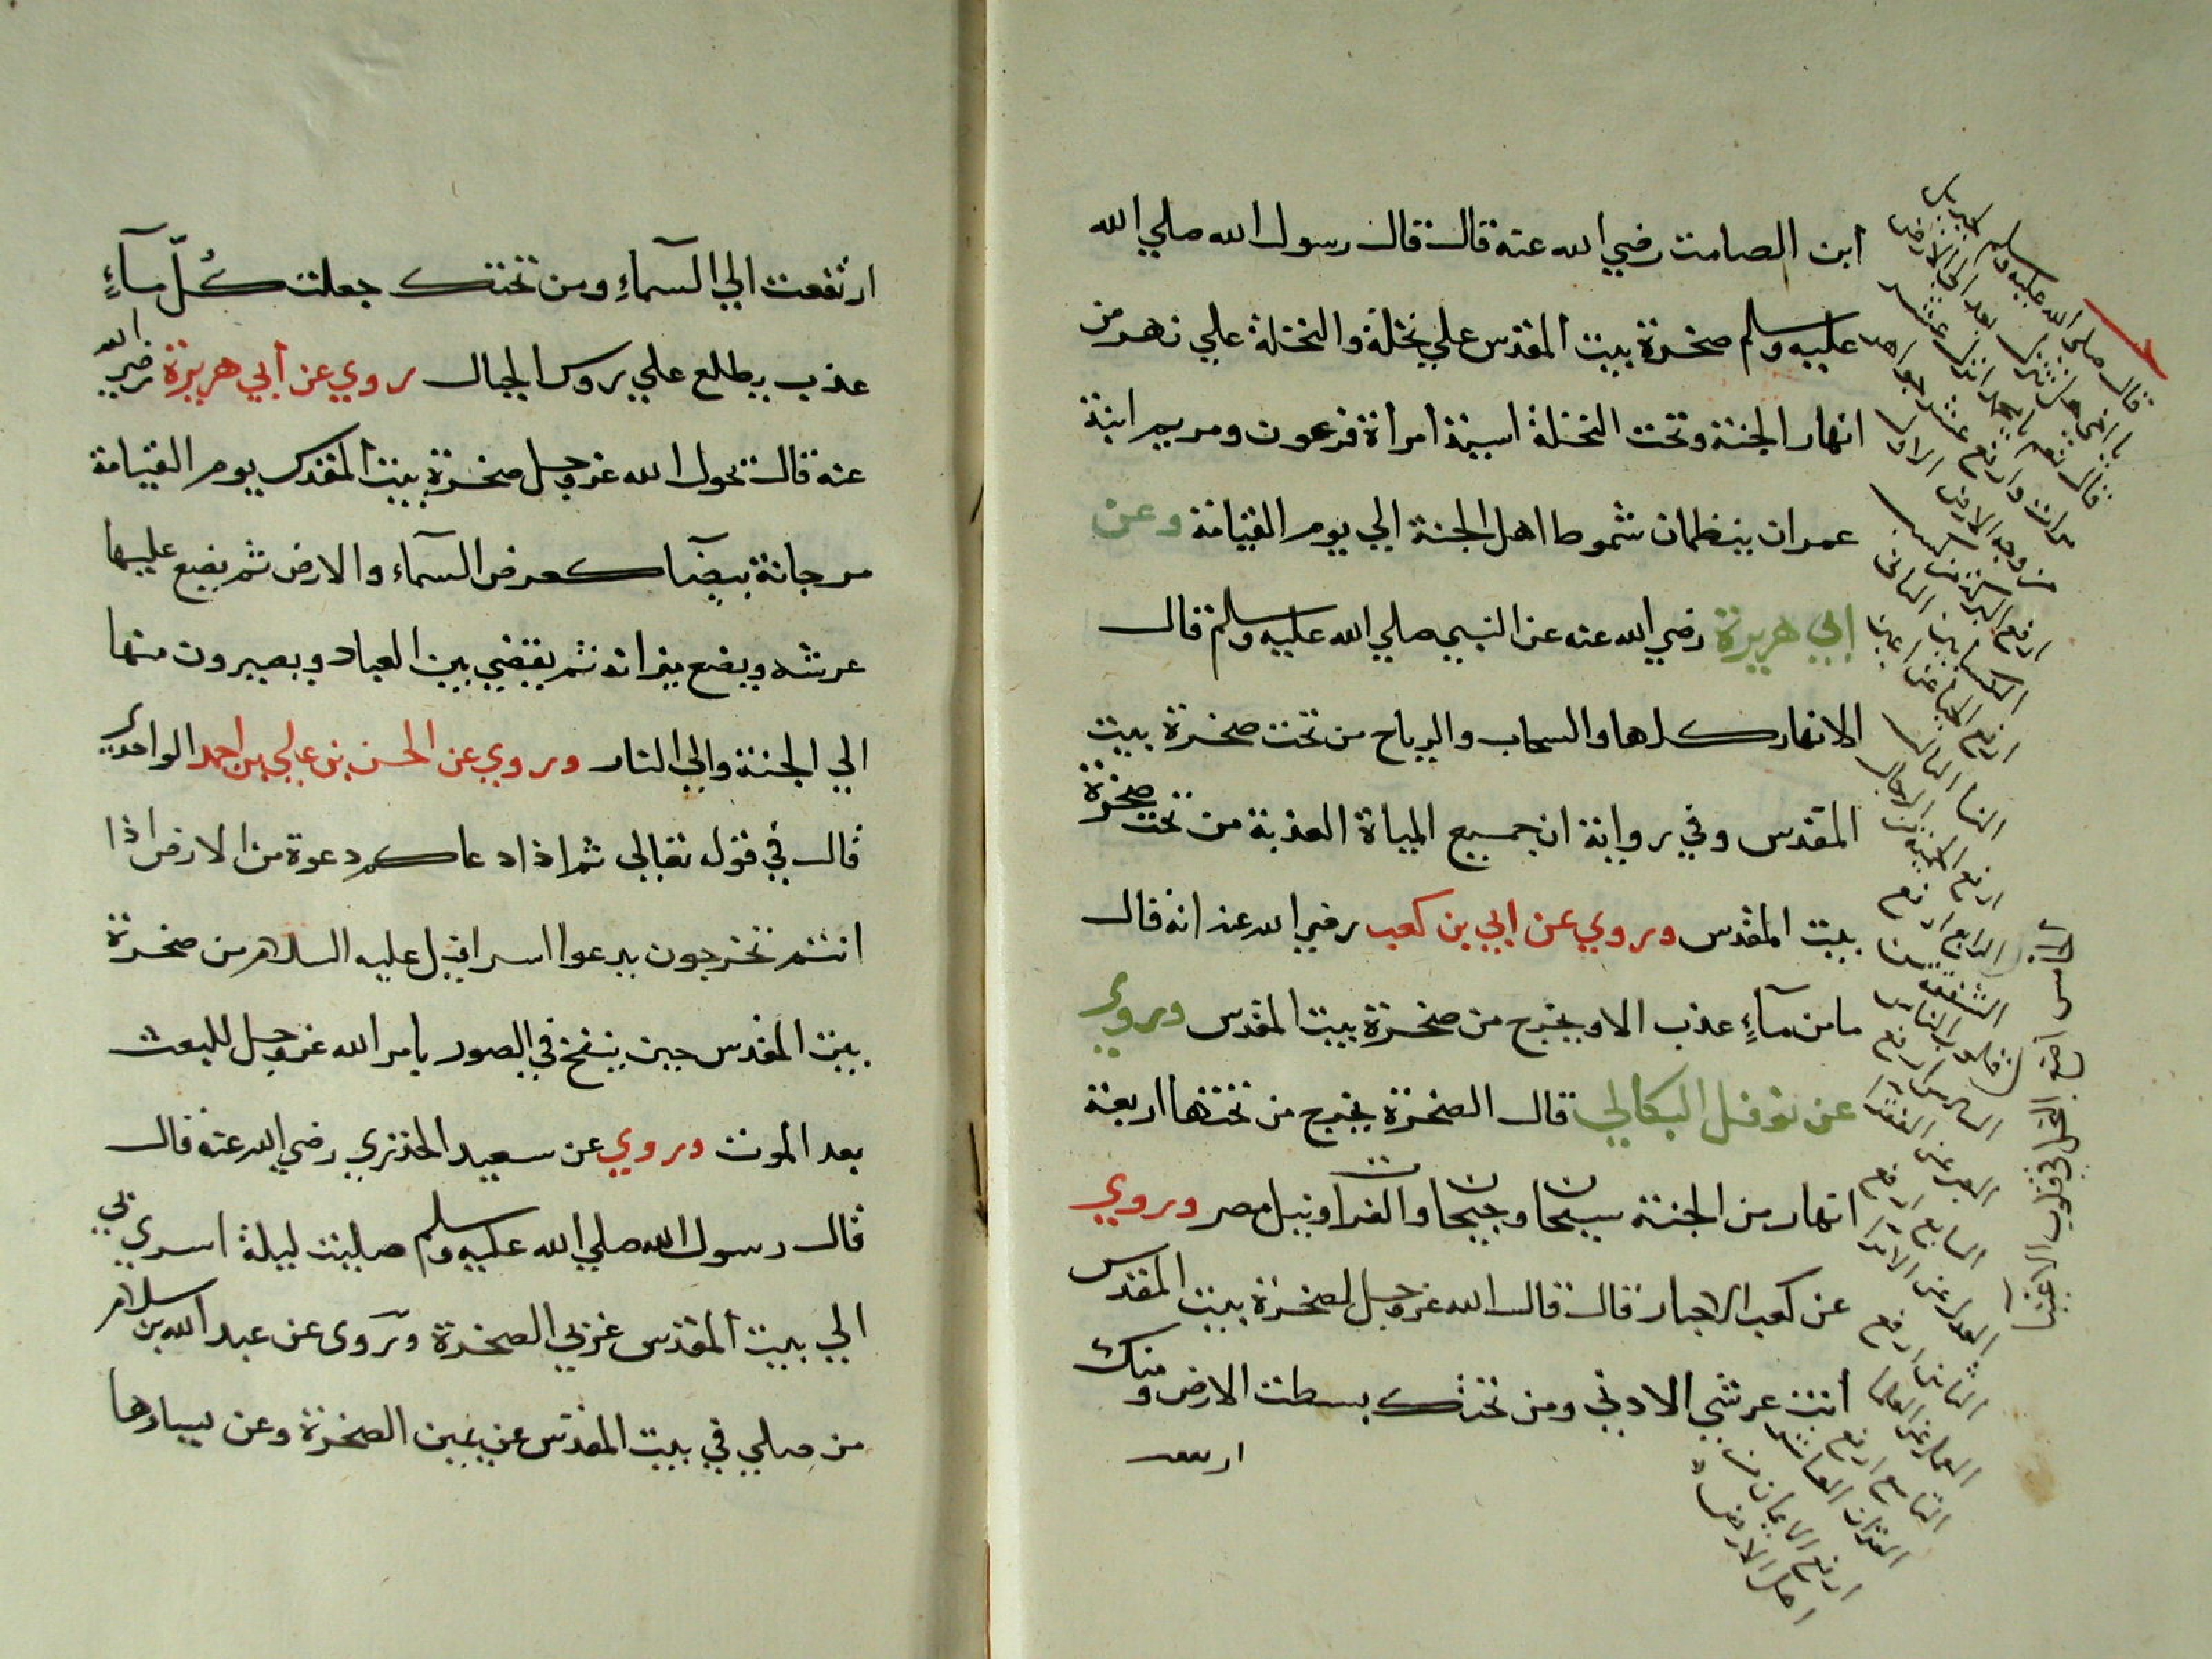 ابن الصامت رضي الله عنه قال قال رسول الله صلي الله
عليه وسلم صخرة بيت المقدس علي نخلة والنخلة علي نهر من
انهار الجنة وتحت النخلة اسية امرأة فرعون ومريم ابنة
عمران ينظمان شموط اهل الجنة الي يوم القيامة وعن
ابي هريرة رضي الله عنه عن النبي صلي الله عليه وسلم قال
الانهار كلها والسحاب والرياح من تحت صخرة بيت
المقدس وفي رواية ان جميع المياة العذبة من تحت صخرة
بيت المقدس وروي عن ابي بن كعب رضي الله عنه انه قال
ما من مآءٍ عذب الا ويخرج من صخرة بيت المقدس وروي
عن نوفل البكالي قال الصخرة يخرج من تحتها اربعة
انهار من الجنة سيحان وجيحان والفرات ونيل مصر وروي
عن كعب الاحبار قال قال الله عز وجل لصخرة بيت المقدس
انت عرشي الادني ومن تحتك بسطت الارض ومنك
قال صلى الله عليه وسلم لجبريل
يا اخي هل تنزل بعدي الى الارض
قال نعم يا محمد انزل عشر
مرات وارفع عشر جواهر
من وجه الارض الاول
ارفع البركة من
الثاني
ارفع الحيا من اعين
النسا الثالث
ارفع الحمية من الرجال
الرابع ارفع
الشفقة من
قلوب الناس
الخامس ارفع البخل في قلوب الاغنيا
السادس ارفع
الصبر عن الفقرا
السابع ارفع
العدل عن الامرا
الثامن ارفع
العلم عن العلما
التاسع ارفع
القران العاشر
ارفع الايمان من
اهل الارض
ارتفعت الي السمآءِ ومن تحتك جعلت كُلّ مآءٍ
عذب يطلع علي روس الجبال روي عن أبي هريرة رضي الله
عنه قال تحول الله عز وجل صخرة بيت المقدس يوم القيامة
مرجانة بيضآ كعرض السمآء والارض ثم يضع عليها
عرشه ويضع ميزانه ثم يقضي بين العباد ويصيرون منها
الي الجنة والي النار وروي عن الحسن بن علي بن احمد الواحدي
قال في قوله تعالي ثم اذا دعاكم دعوة من الارض اذا
انتم تخرجون يدعوا اسرافيل عليه السلام من صخرة
بيت المقدس حين ينفخ في الصور يامر الله عز وجل للبعث
بعد الموت وروي عن سعيد الخذري رضي الله عنه قال
قال رسول الله صلي الله عليه وسلم صليت ليلة اسري بي
الي بيت المقدس غربي الصخرة وروى عن عبد الله بن سلام
من صلي في بيت المقدس عن يمين الصخرة وعن يسارها